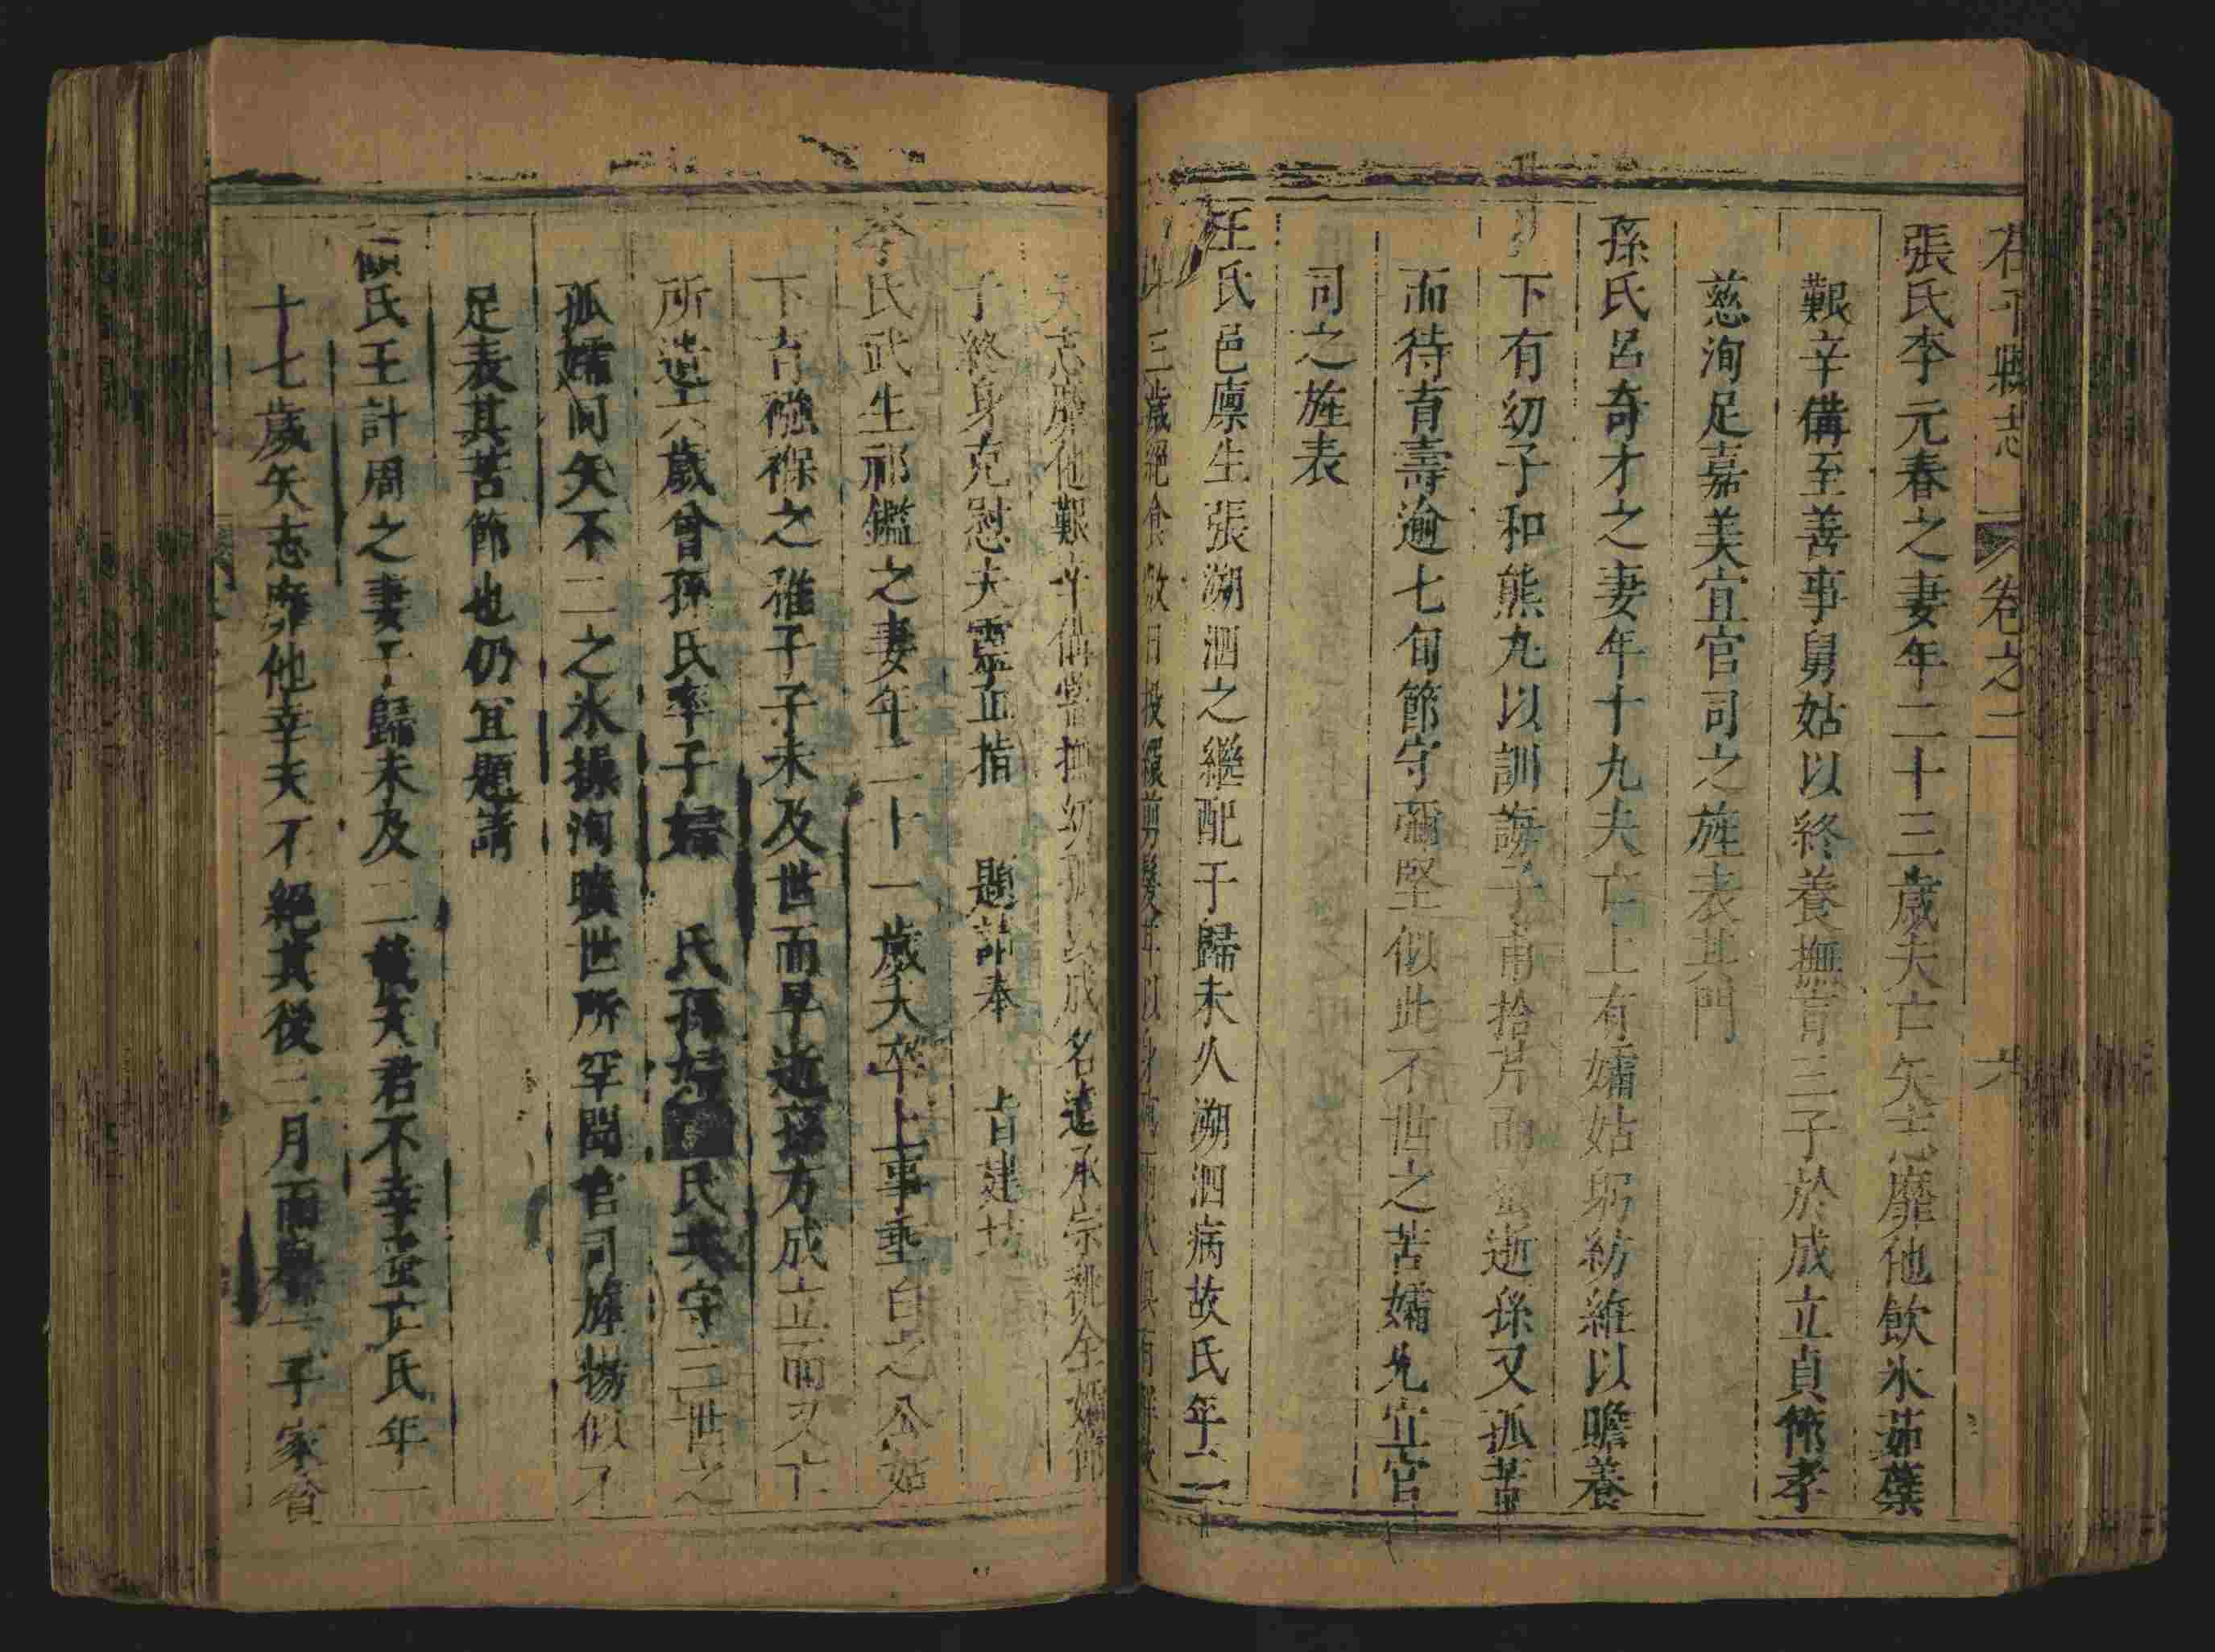 在平縣志 卷之二 六
張氏李元春之妻年二十三歲夫亡矢志靡他飲氷茹蘗
艱辛備至善事舅姑以終養撫育三子於成立貞節孝
慈洵足嘉美宜官司之旌表其門
孫氏呂奇才之妻年十九夫亡上有孀姑躬紡維以瞻養
下有幼子和熊丸以訓誨子甫拾芹而蚤逝孫又孤苦
而待育壽逾七旬節守彌堅似此不世之苦孀允宜官
司之旌表
王氏邑廩生張溯泗之繼配于歸未久溯泗病故氏年二
十三歲絕食數日投繯剪髮
志靡他艱辛備嘗撫幼孤以成名遠承宗祧全孀節
于終身克慰夫靈正指 題請奉 旨建坊
李氏武生祁鑑之妻年二十一歲夫卒上事垂白之公姑
下育襁褓之稚子子未及世而早逝孫方成立而又亡
所遺六歲曾孫氏率子婦 氏孫婦 氏共守三世之
孤孀間矢不二之氷操洵曠世所罕聞官司旌揚似不
足表其苦節也仍宜題請
氏王計周之妻于歸未及二載夫君不幸蚤亡氏年二
十七歲矢志靡他幸天不絕其後三月而舉一子家貧